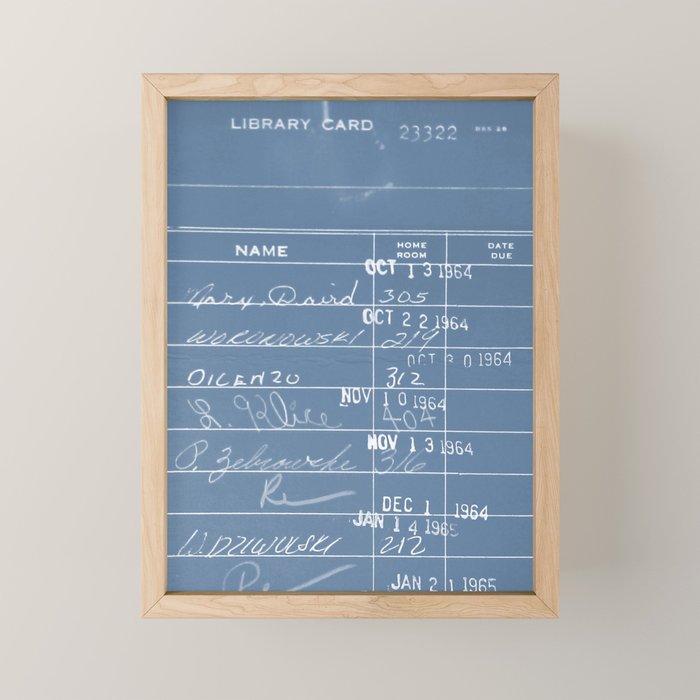 LIBRARY CARD 23322
NAME HOME ROOM DATE DUE
OCT 13 1964
Mary Daird 305
OCT 22 1964
WORONOWSKI 219
OCT 30 1964
DILENZO 312
NOV 10 1964
L. Klice 404
NOV 13 1964
P. Zebrowske 316
DEC 1 1964
JAN 14 1965
W. DZIWULSKI 212
JAN 21 1965